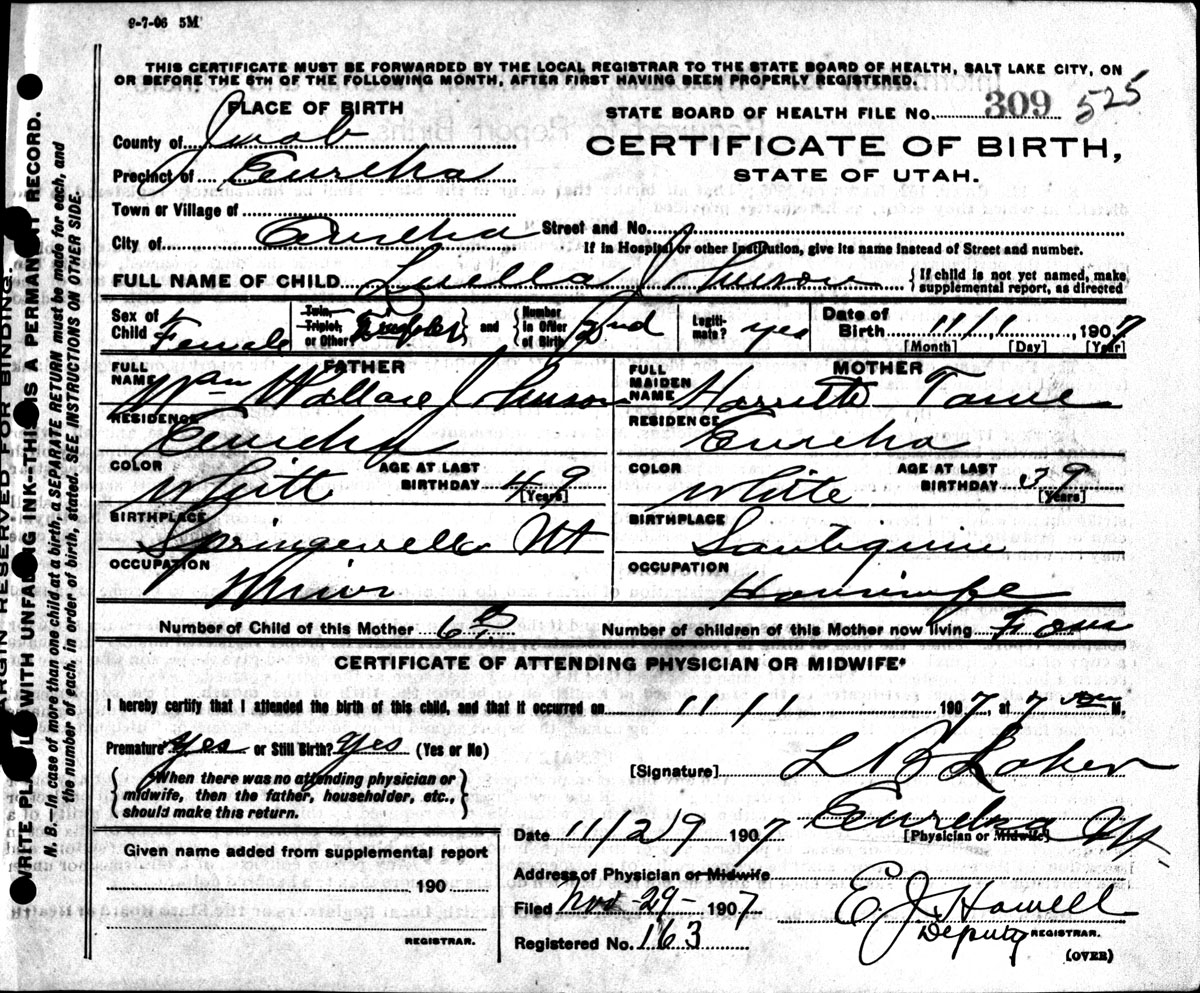 9-7-06 5M
THIS CERTIFICATE MUST BE FORWARDED BY THE LOCAL REGISTRAR TO THE STATE BOARD OF HEALTH, SALT LAKE CITY, ON
OR BEFORE THE 5TH OF THE FOLLOWING MONTH, AFTER FIRST HAVING BEEN PROPERLY REGISTERED.
PLACE OF BIRTH
County of Juab
Precinct of Eureka
Town or Village of
City of Eureka
STATE BOARD OF HEALTH FILE No. 309 525
CERTIFICATE OF BIRTH,
STATE OF UTAH.
Street and No.
If in Hospital or other Institution, give its name instead of Street and number.
FULL NAME OF CHILD Luella Johnson
{If child is not yet named, make
supplemental report, as directed
Sex of Child Female
Twin, Triplet, or Other? and Number in Order of Birth 2nd
Legitimate? yes
Date of Birth 11/1, 1907
[Month] [Day] [Year]
FATHER
FULL NAME Wm Wallace Johnson
RESIDENCE Eureka
COLOR White
AGE AT LAST BIRTHDAY 49 [Years]
BIRTHPLACE Springville Ut
OCCUPATION Miner
MOTHER
FULL MAIDEN NAME Harriett
RESIDENCE Eureka
COLOR White
AGE AT LAST BIRTHDAY 39 [Years]
BIRTHPLACE Santiquin
OCCUPATION Housewife
Number of Child of this Mother 6th
Number of children of this Mother now living Four
CERTIFICATE OF ATTENDING PHYSICIAN OR MIDWIFE*
I hereby certify that I attended the birth of this child, and that it occurred on 11/1 1907, at 7 M.
Premature? Yes or Still Birth? Yes (Yes or No)
{When there was no attending physician or
midwife, then the father, householder, etc.,
should make this return.}
[Signature] L B Laker
Eureka Ut
[Physician or Midwife]
Date 11/29 1907
Address of Physician or Midwife
Filed Nov-29- 1907
Registered No. 163
E J Howell
Deputy REGISTRAR.
(OVER)
Given name added from supplemental report
190
REGISTRAR.
MARGIN RESERVED FOR BINDING.
WRITE PLAINLY WITH UNFADING INK--THIS IS A PERMANENT RECORD.
N. B.—In case of more than one child at a birth, a SEPARATE RETURN must be made for each, and
the number of each, in order of birth, stated. SEE INSTRUCTIONS ON OTHER SIDE.